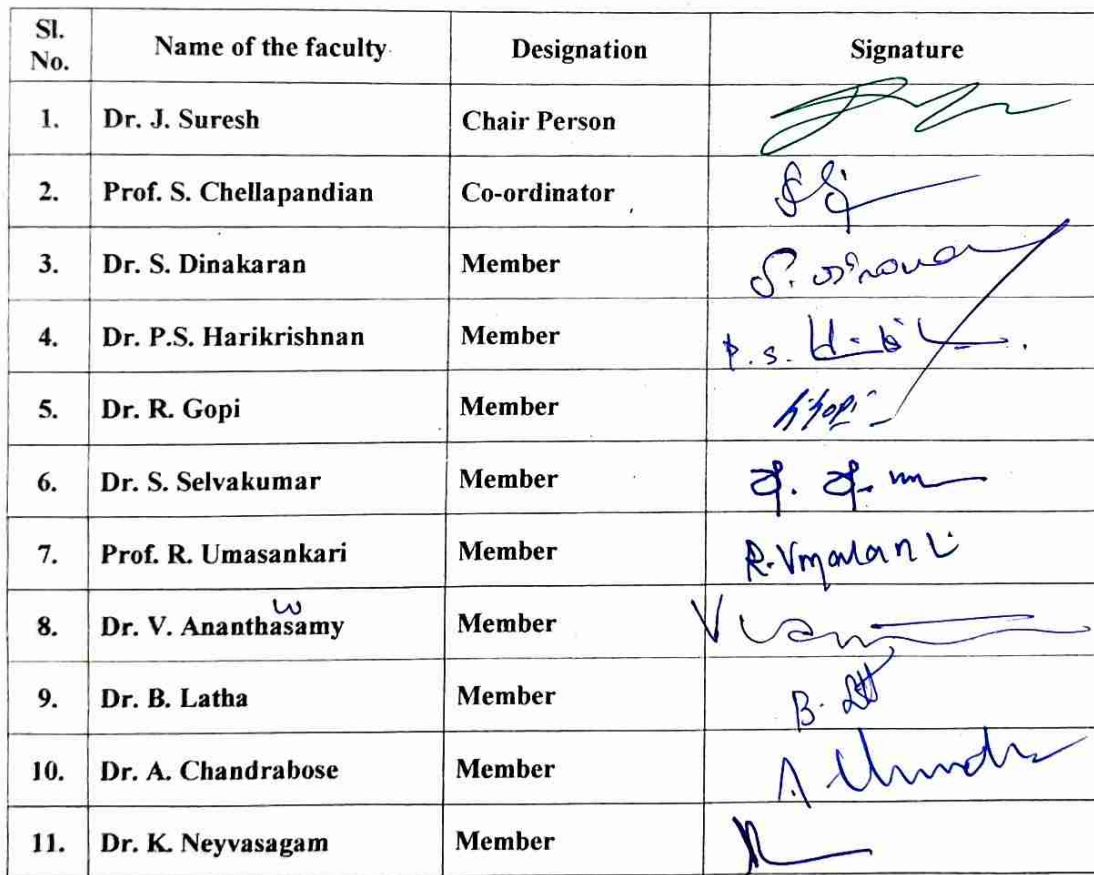 Sl. No. Name of the faculty Designation Signature
1. Dr. J. Suresh Chair Person
2. Prof. S. Chellapandian Co-ordinator
3. Dr. S. Dinakaran Member S.
4. Dr. P.S. Harikrishnan Member P.S.
5. Dr. R. Gopi Member
6. Dr. S. Selvakumar Member
7. Prof. R. Umasankari Member R.
w
8. Dr. V. Ananthasamy Member V
9. Dr. B. Latha Member B.
10. Dr. A. Chandrabose Member A
11. Dr. K. Neyvasagam Member